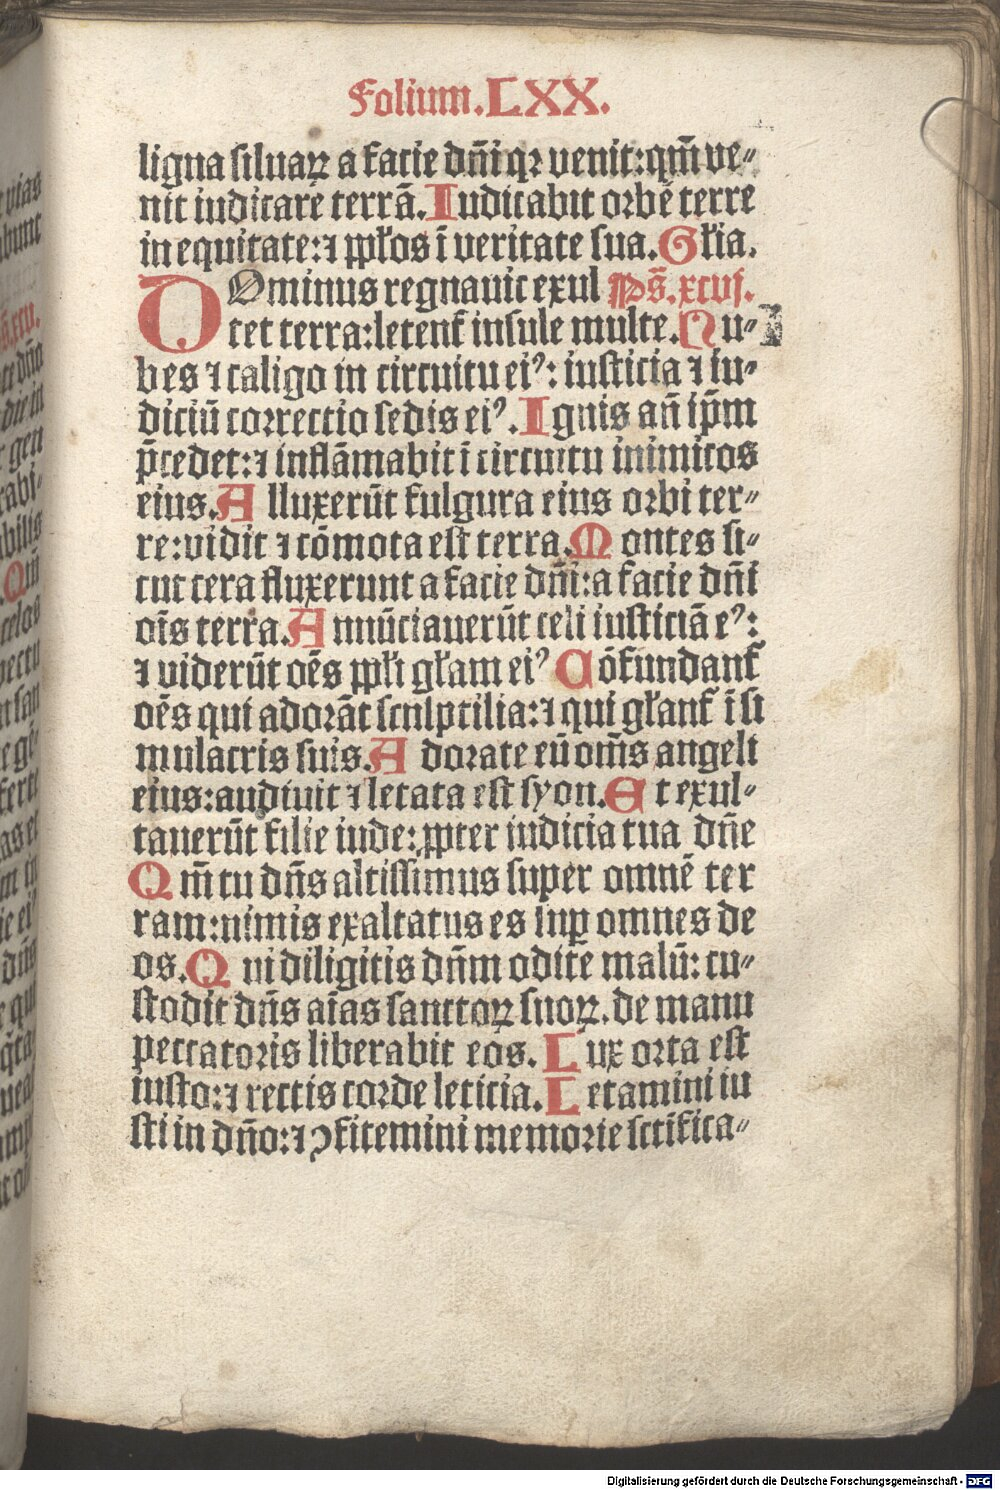 Folium.LXX.
ligna siluaꝝ a facie dn̄i qꝛ venit: qm̄ ve⸗
nit iudicare terrā. Iudicabit orbē terre
in equitate: ⁊ ꝓpłos ī veritate sua. Głia.
DOminus regnauit exul Ps̄.xcvj.
tet terra: letenť insule multe. Nu⸗
bes ⁊ caligo in circuitu eiꝰ: iusticia ⁊ iu⸗
diciū correctio sedis eiꝰ. Ignis an̄ ip̄m
p̄cedet: ⁊ inflāmabit ī circuitu inimicos
eius. Alluxerūt fulgura eius orbi ter⸗
re: vidit ⁊ cōmota est terra. Montes si⸗
cut cera fluxerunt a facie dn̄i: a facie dn̄i
oīs terra. Annūciauerūt celi iusticiā eꝰ:
⁊ viderūt oēs ppłi głam eiꝰ Cōfundanť
oēs qui adorāt sculptilia: ⁊ qui głanť ī si
mulacris suis. Adorate eū om̄s angeli
eius: audiuit ⁊ letata est syon. Et exul⸗
tauerūt filie iude: ꝓpter iudicia tua dn̄e
Qm̄ tu dn̄s altissimus super omnē ter
ram: nimis exaltatus es suꝑ omnes de
os. Qui diligitis dn̄m odite malū: cu⸗
stodit dn̄s aīas sanctoꝝ suoꝝ. de manu
peccatoris liberabit eos. Lux orta est
iusto: ⁊ rectis corde leticia. Letamini iu
sti in dn̄o: ⁊ ꝯfitemini memorie sctīfica⸗
Digitalisierung gefördert durch die Deutsche Forschungsgemeinschaft - DFG